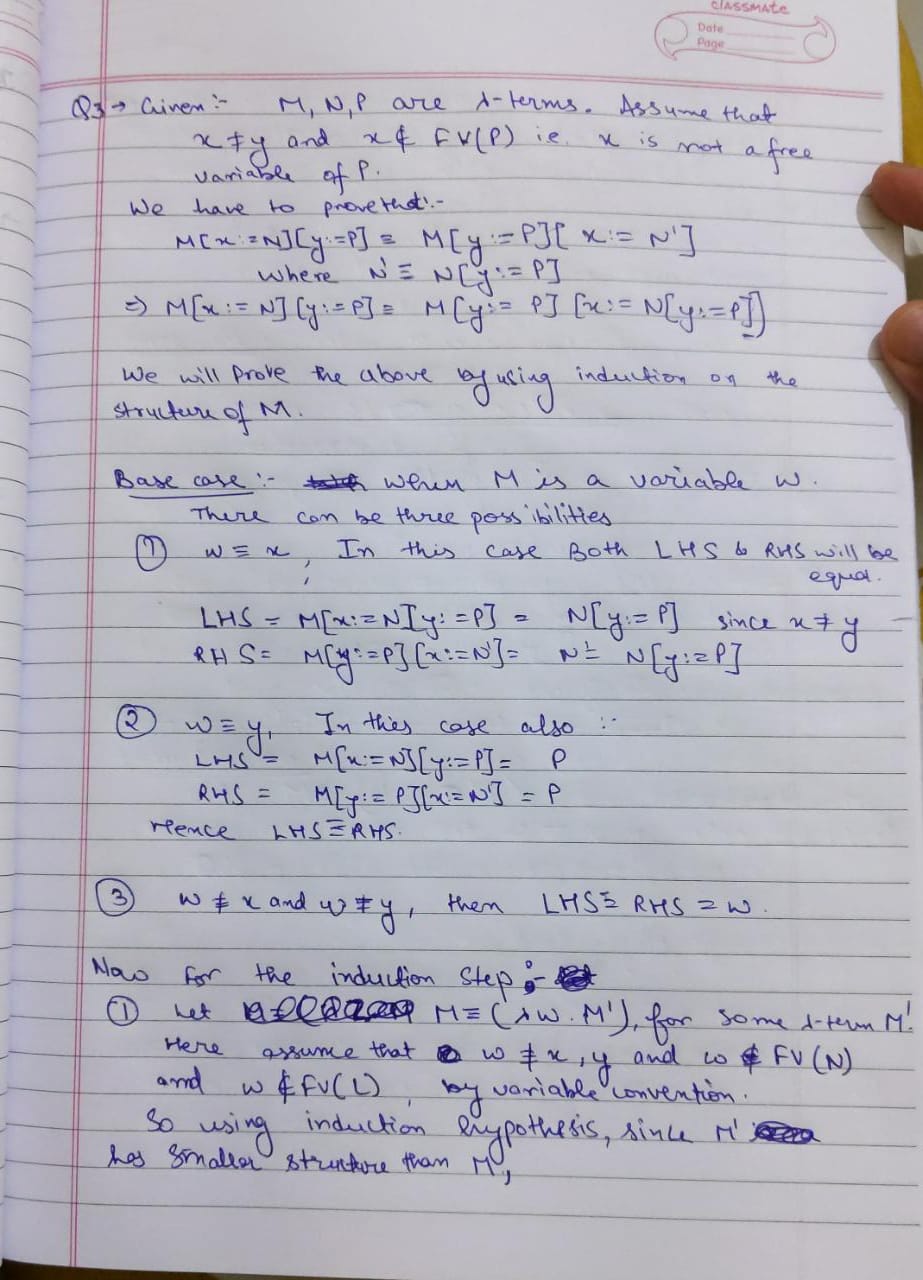 classmate
Date
Page
Q3→ Given:- M, N, P are λ-terms. Assume that
x ≠ y and x ∉ FV(P) ie. x is not a free
variable of P.
We have to prove that:-
M[x:=N][y:=P] ≡ M[y:=P][x:=N']
where N' ≡ N[y:=P]
⇒ M[x:=N][y:=P] ≡ M[y:=P][x:=N[y:=P]]
We will prove the above by using induction on the
structure of M.
Base case:- when M is a variable w.
There can be three possibilities
① w ≡ x, In this case Both LHS & RHS will be
equal.
LHS = M[x:=N][y:=P] = N[y:=P] since x ≠ y
RHS = M[y:=P][x:=N'] = N' = N[y:=P]
② w ≡ y, In this case also :-
LHS = M[x:=N][y:=P] = P
RHS = M[y:=P][x:=N'] = P
Hence LHS ≡ RHS.
③ w ≢ x and w ≢ y, then LHS ≡ RHS = w.
Now for the induction step:-
① Let M ≡ (λw. M'), for some λ-term M'.
Here assume that w ≠ x, y and w ∉ FV(N)
and w ∉ FV(L), by variable convention.
So using induction hypothesis, since M'
has smaller structure than M,